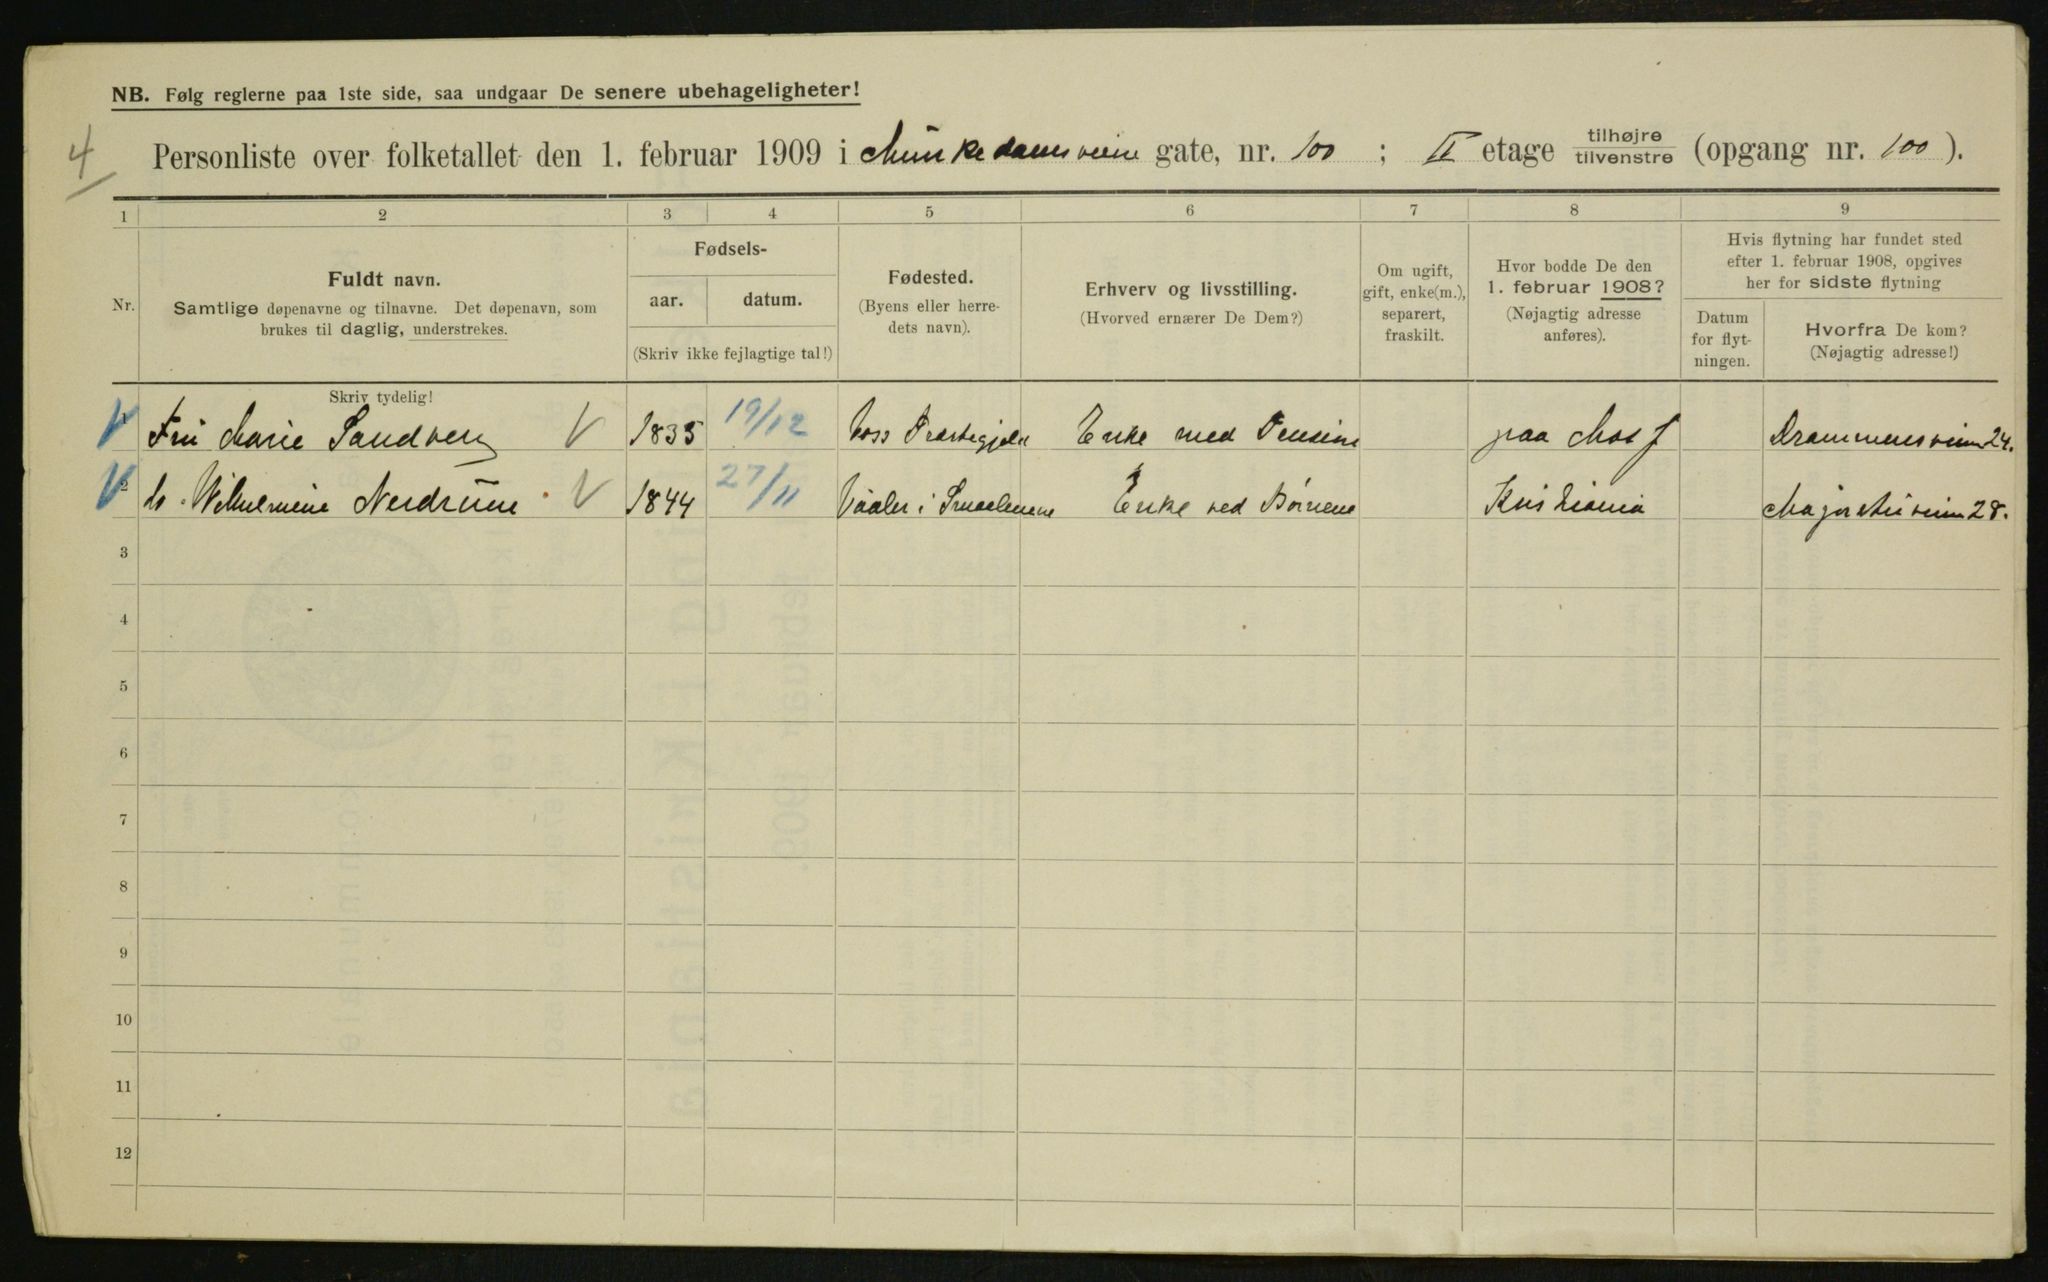 NB. Følg reglerne paa 1ste side, saa undgaar De senere ubehageligheter!
4
Personliste over folketallet den 1. februar 1909 i Munkedamsveien gate, nr. 100 ; II etage tilhøjre / tilvenstre (opgang nr. 100 ).
1 2 3 4 5 6 7 8 9
Nr.
Fuldt navn.
Samtlige døpenavne og tilnavne. Det døpenavn, som
brukes til daglig, understrekes.
Fødsels-
aar. datum.
(Skriv ikke fejlagtige tal!)
Fødested.
(Byens eller herre-
dets navn).
Erhverv og livsstilling.
(Hvorved ernærer De Dem?)
Om ugift,
gift, enke(m.),
separert,
fraskilt.
Hvor bodde De den
1. februar 1908?
(Nøjagtig adresse
anføres).
Hvis flytning har fundet sted
efter 1. februar 1908, opgives
her for sidste flytning
Datum
for flyt-
ningen.
Hvorfra De kom?
(Nøjagtig adresse!)
Skriv tydelig!
1 Fru Marie Sandberg 1835 19/12 Voss Præstegjeld Enke med Pension paa Moss Drammensveien 24.
2 Wilhelmine Nerdrum 1844 27/11 Vaaler i Smaalenene Enke ved Børnene Kristiania Majorstuveien 28.
3
4
5
6
7
8
9
10
11
12